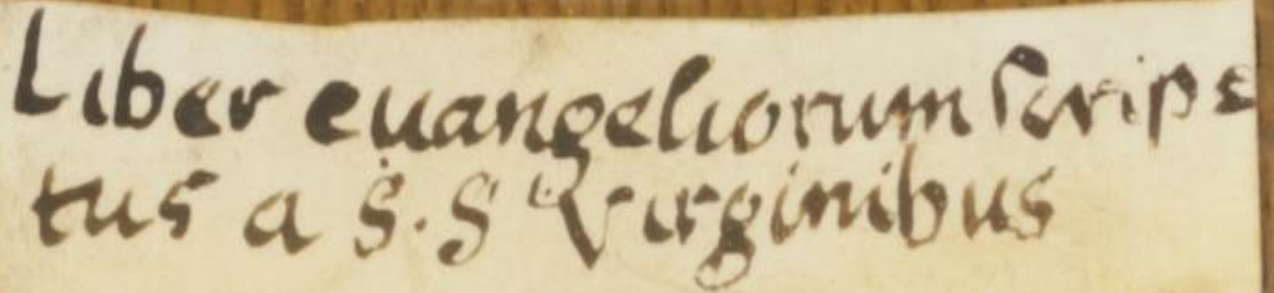 Liber euangeliorum scrip=
tus a S.S Virginibus